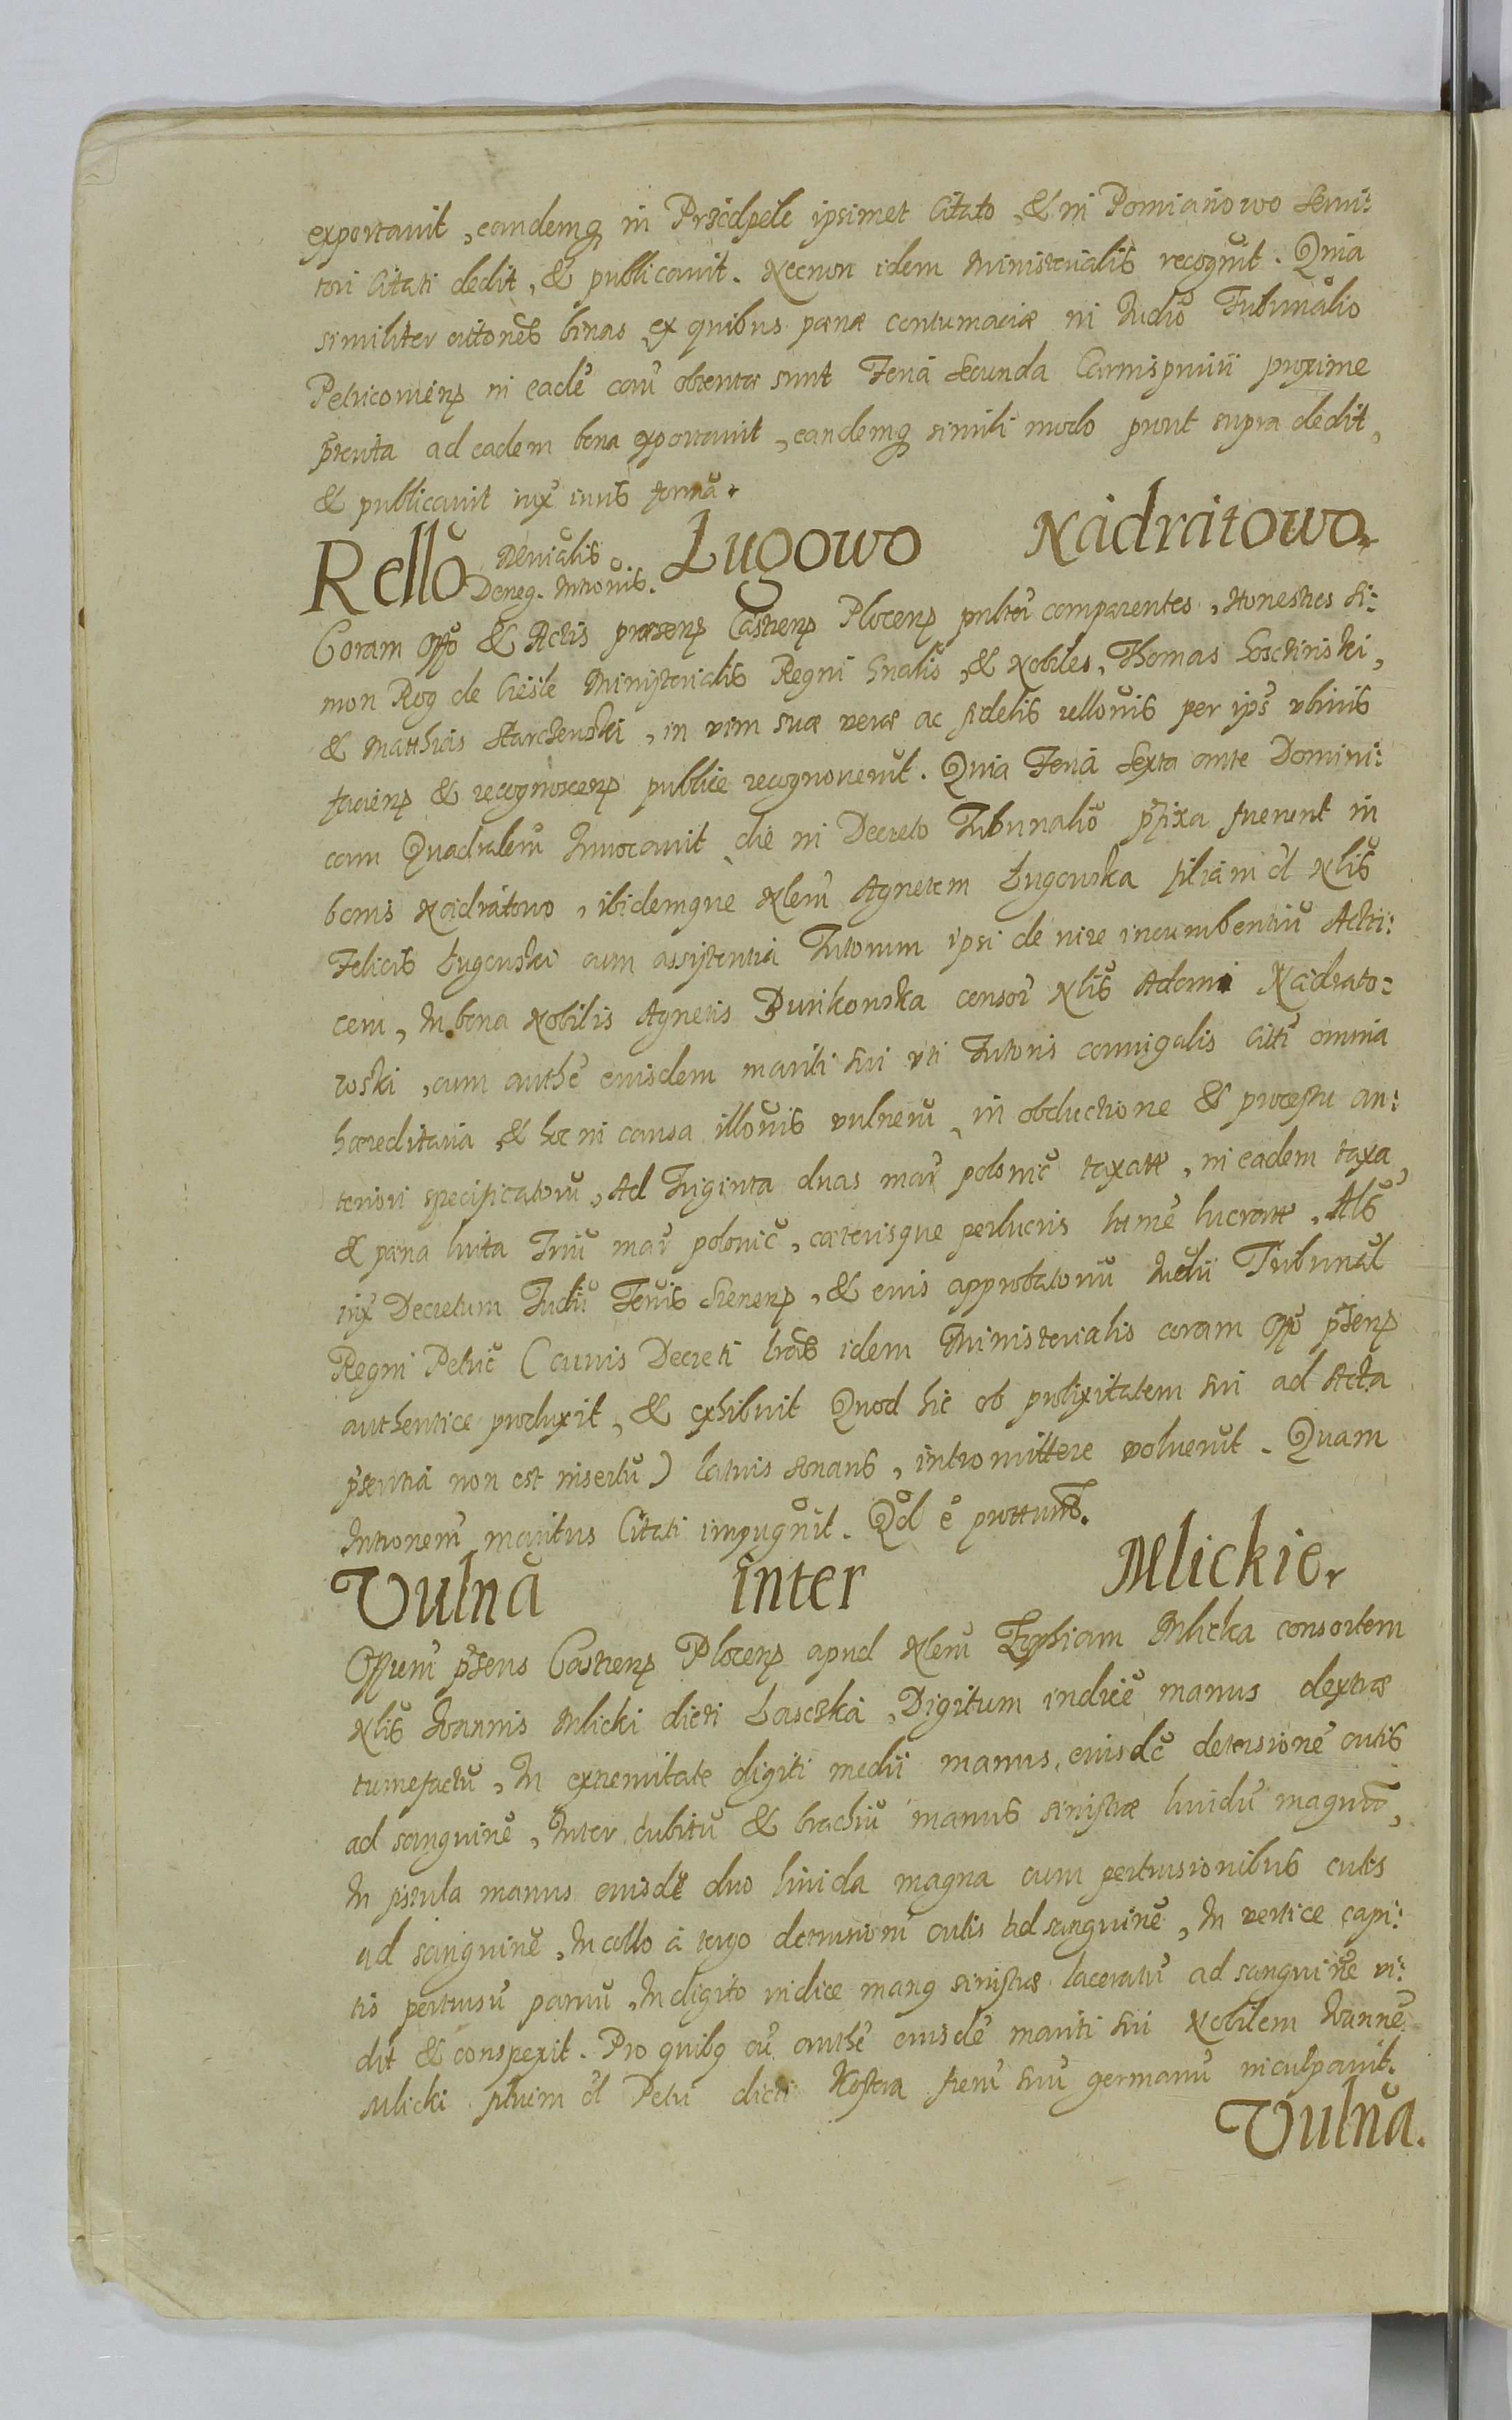 exportavit, eandemq in Przcdpełe ipsimet Citato, & in Pomianowo Servi:
tori Citati dedit, & publicavit. Necnon idem Ministerialis recognūt. Quia
similiter citones binas ex quibus pænæ contumaciæ in Iudio Tribunalio
Petricoviens in eadē cāu obtentæ sunt Feria Secunda Carnisprivii proxime
præterita ad eadem bona exportavit, eandemq simili modo prout supra dedit,
& publicavit iux iuris formā.
Rellō Mērialis Deneg. Intronis. Lugowo Nádrátowo.
Coram Offo & Actis præsens Castrens Plocens pnlter comparentes, Honestus Si:
mon Rog de Ciesle Ministerialis Regni Gnalis, & Nobiles, Thomas
& Matthias, in vim suæ veræ ac fidelis rellonis per ips
faciens & recognoscens publice recognoverūt. Quia Feria Sexta ante Domini:
cam Quadralem Invocavit die in Decreto Tribunalio pfixa fuerunt in
bonis Nádrátowo, ibidemque Nlem Agnetem Lugowska filiam ol Nlis
Felicis Lugowski cum assistentia Tutorum ipsi de iure incumbentiū Actri:
cem, In bona Nobilis Agnetis consor Nlis Adami Nádráto:
wski, cum authē eiusdem mariti sui uti Tutoris coniugalis Citt omnia
hæreditaria, & hoc in causa illonis vulnerū, in obductione & processu an:
teriori specificatorū, Ad Triginta duas mar polonic taxatt, in eadem taxa,
& pæna luita Triū mar polonic, cæterisque perlucris lucratt. Als
iux Decretum Iudii Terris Sierens, & eius approbatoriū Iudii Tribunal
Regni Petric (cuius Decreti lras idem Ministerialis coram Offo psens
authentice produxit, & exhibuit Quod hic ob prolixitatem sui ad Acta
psentia non est insertū) latius sonans, intromittere voluerūt. Quam
Intronem maritus Citati impugnūt. Qd ē prottuns.
Vulnā inter Mlickie.
Offium psens Castrens Plocens apud Nlem Zophiam Mlicka consortem
Nlis Ioannis Mlicki dicti Lasczka, Digitum indicē manus dextræ
tumefactū, In extremitate digiti medii manus, eiusdē detersionē cutis
ad sanguinē, Inter cubitū & brachiū manus sinistræ lividū magnū,
In fistula manus eiusdē duo livida magna cum pertrusionibus cutis
ad sanguinē, In collo à tergo detrusionē cutis ad sanguinē, In vertice capi:
tis pertrusū parvū, In digito indice manq sinistræ laceratū ad sanguinē vi:
dit & conspexit. Pro quibq cū authē eiusdē mariti sui Nobilem Ioannē
Mlicki filium ol Petri dicti Kostera frem suū germanū inculpavit.
Vulnā.